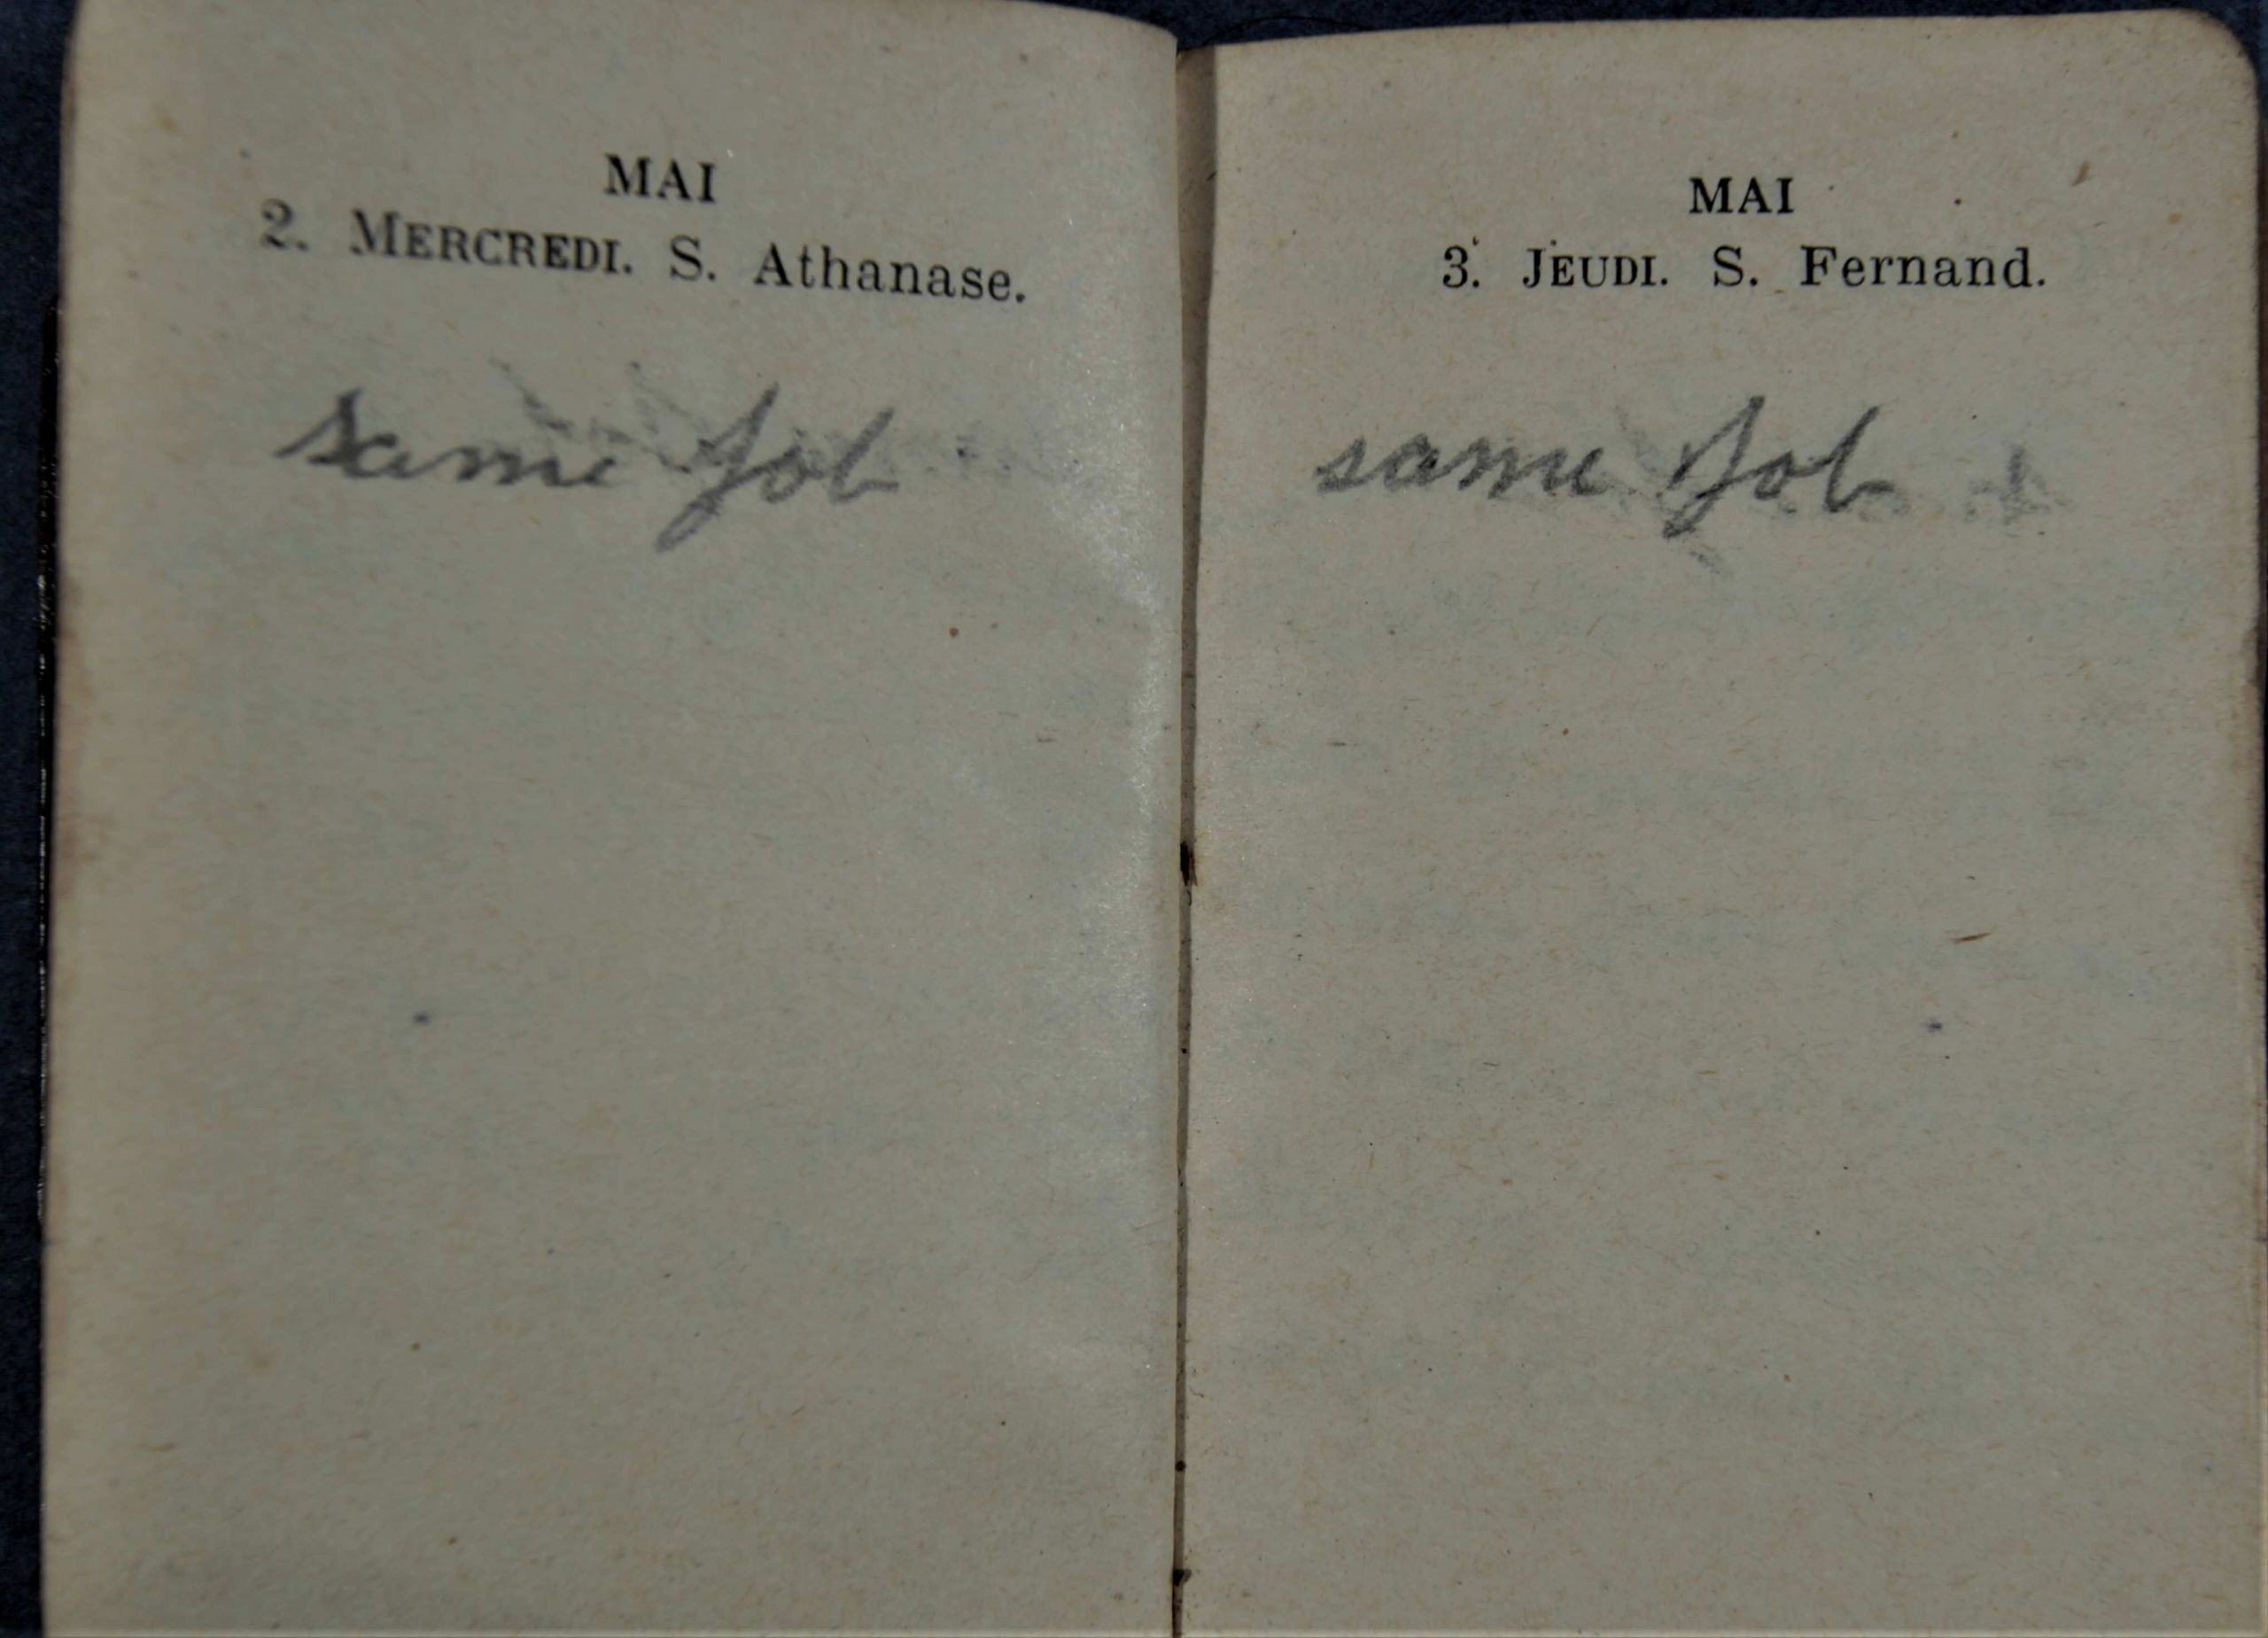 MAI
2. MERCREDI. S. Athanase.
same job
MAI
3. JEUDI. S. Fernand.
same job